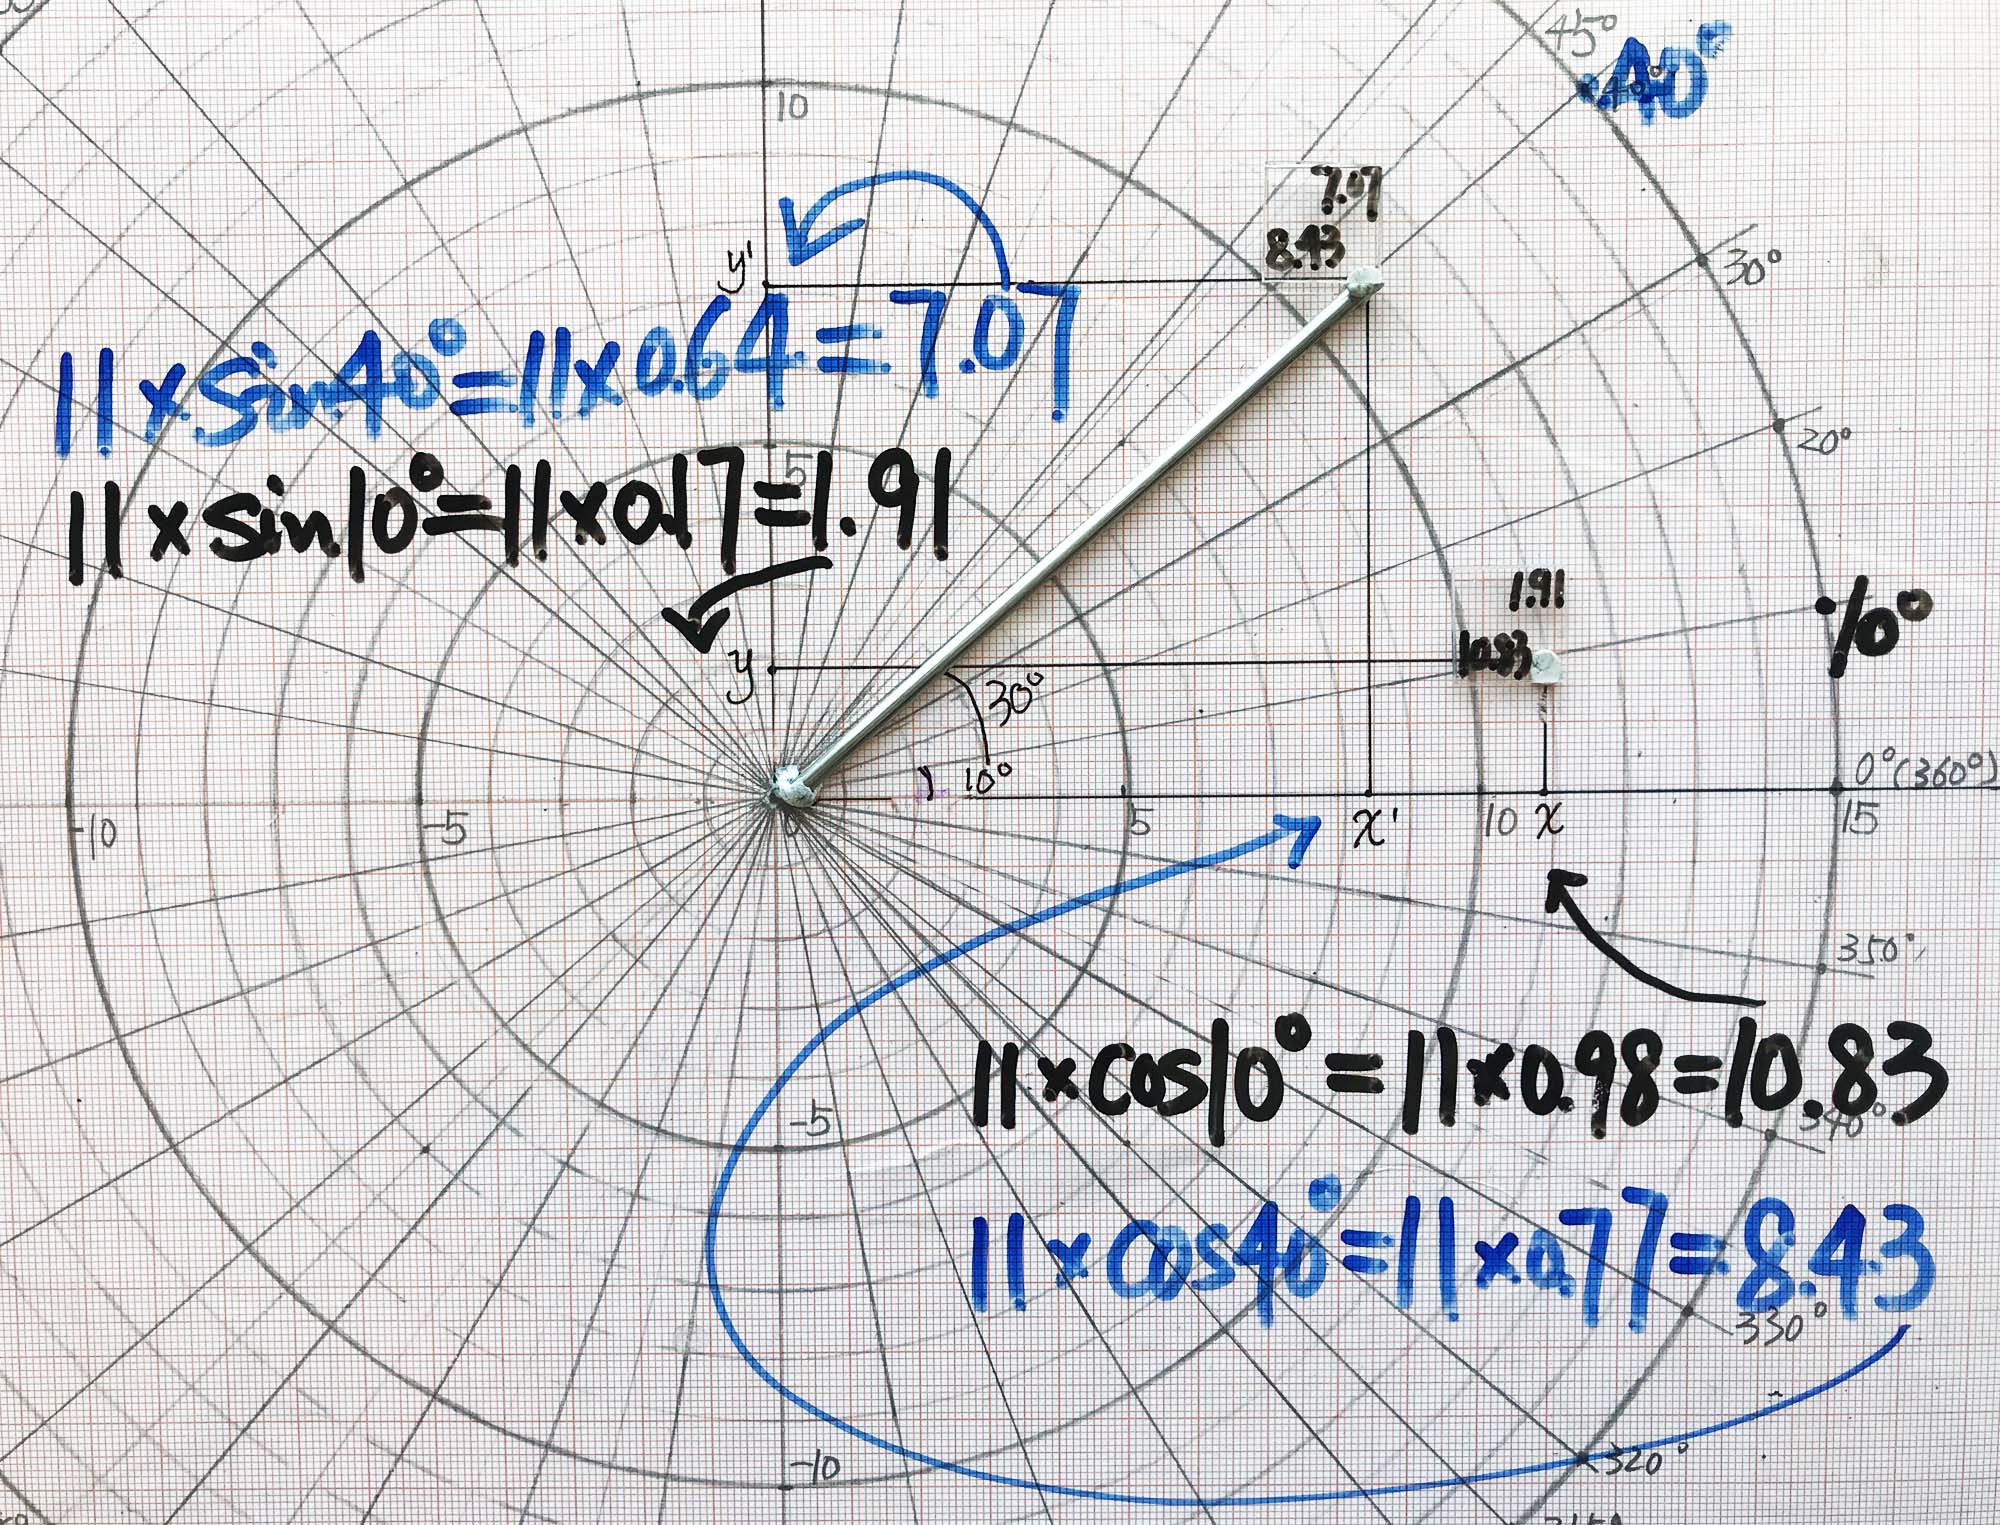 45°
40°
40°
10
7.07
8.43
30°
y'
11×sin40°=11×0.64=7.07
20°
5
11×sin10°=11×0.17=1.91
1.91
10.83
10°
y
30°
10°
0°(360°)
-10
-5
0
5
x'
10
x
15
350°
11×cos10°=11×0.98=10.83
-5
340°
11×cos40°=11×0.77=8.43
330°
-10
320°